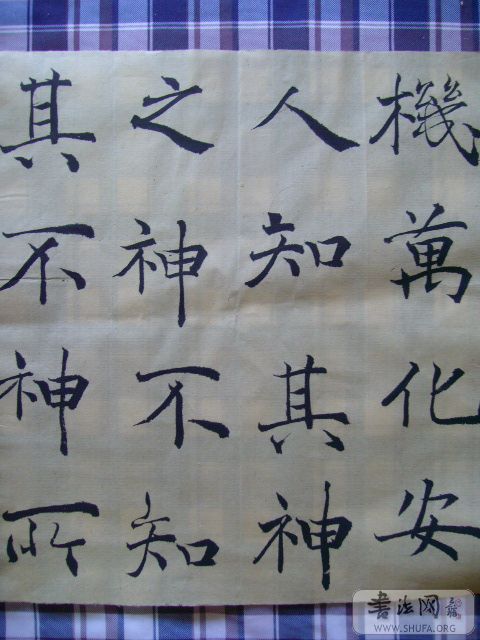 機萬化安
人知其神
之神不知
其不神所
書法网
WWW.SHUFA.ORG